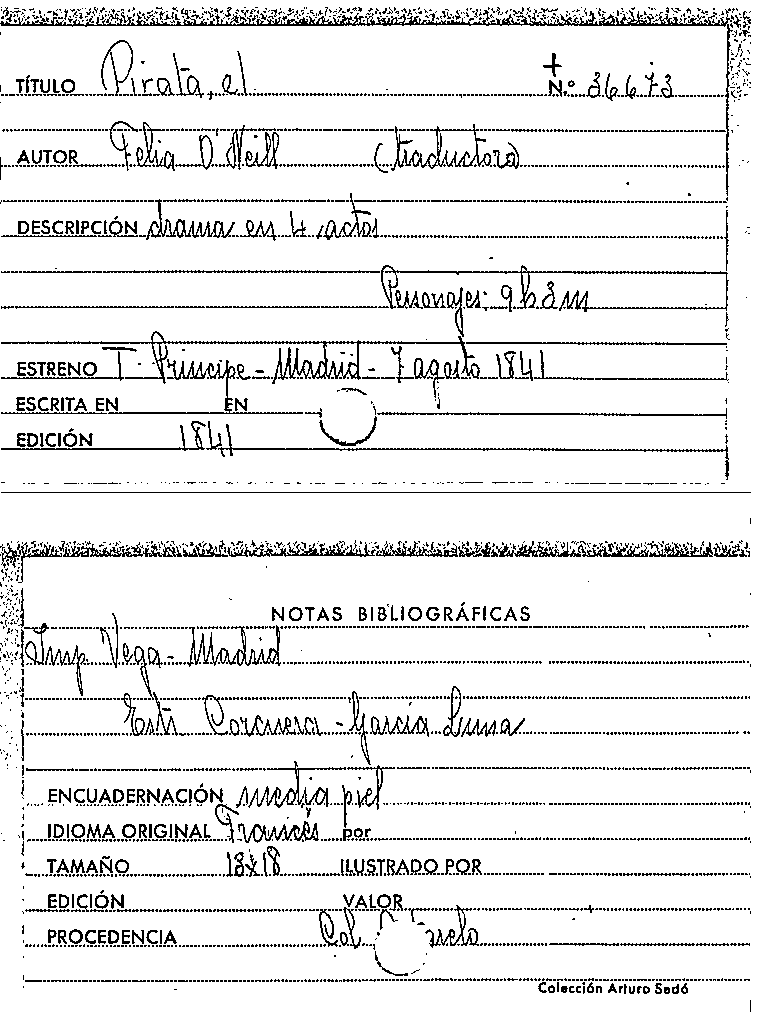 TÍTULO Pirata, el + N.º 36673
AUTOR Felia O'Neill (traductora)
DESCRIPCIÓN drama en 4 actos
Personajes: 9h3m
ESTRENO T. Principe - Madrid - 7 agosto 1841
ESCRITA EN EN
EDICIÓN 1841
NOTAS BIBLIOGRÁFICAS
Imp Vega - Madrid
Estr Corcuera - García Luna
ENCUADERNACIÓN media piel
IDIOMA ORIGINAL Francés por
TAMAÑO 18x18 ILUSTRADO POR
EDICIÓN VALOR
PROCEDENCIA Col.
Colección Arturo Sedó